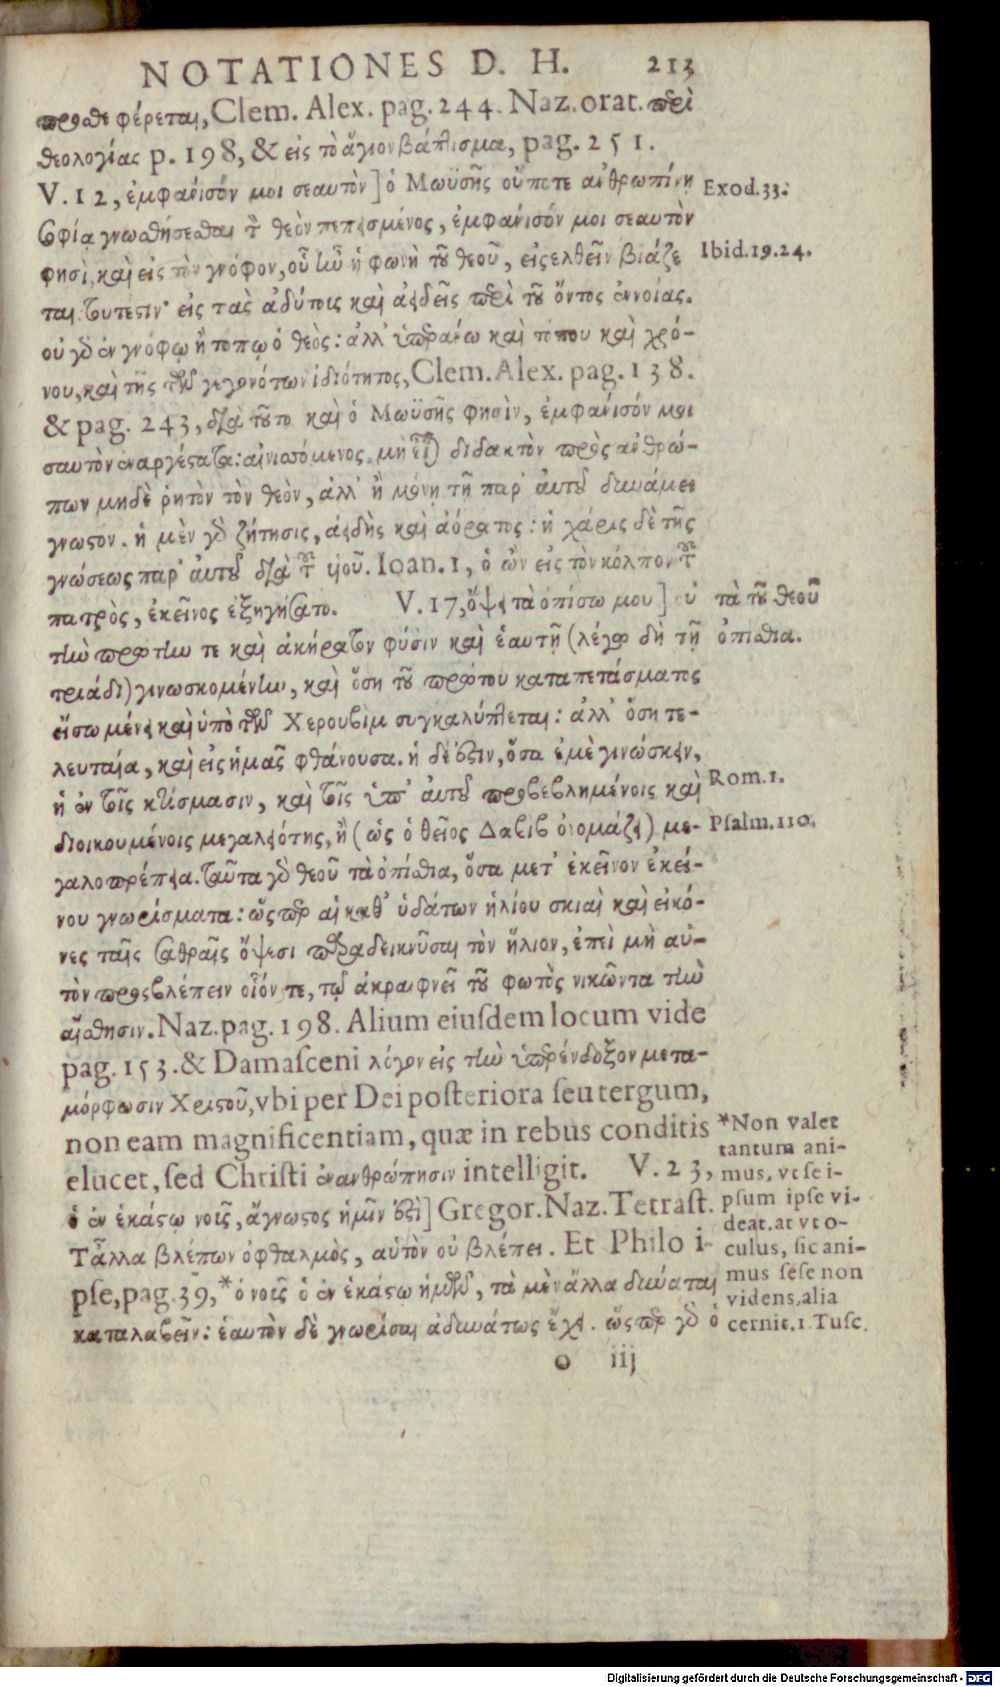 NOTATIONES D. H. 213
προσφέρεται, Clem. Alex. pag. 244. Naz. orat. περὶ
θεολογίας p. 198, & εἰς τὸ ἅγιον βάπτισμα, pag. 251.
V. 12, ἐμφάνισόν μοι σεαυτὸν] ὁ Μωϋσῆς οὔποτε ἀνθρωπίνῃ Exod. 33.
σοφίᾳ γνωσθήσεσθαι τ̀ θεὸν πεπεισμένος, ἐμφάνισόν μοι σεαυτὸν
φησὶ, καὶ εἰς τὸν γνόφον, οὗ ἦν ἡ φωνὴ τοῦ θεοῦ, εἰσελθεῖν βιάζε Ibid. 19.24.
ται. τουτέστιν εἰς τὰς ἀδύτοις καὶ ἀειδεῖς περὶ τοῦ ὄντος ἐννοίας.
οὐ γὸ ἐν γνόφῳ ἢ τόπῳ ὁ θεὸς: ἀλλ' ὑπεράνω καὶ τόπου καὶ χρό-
νου, καὶ τῆς τῶν γεγονότων ἰδιότητος, Clem. Alex. pag. 138.
& pag. 243, διὰ τοῦτο καὶ ὁ Μωϋσῆς φησὶν, ἐμφάνισόν μοι
σαυτὸν ἐναργέστατα: αἰνισσόμενος, μὴ εἶναι διδακτὸν πρὸς ἀνθρώ-
πων μηδὲ ῥητὸν τὸν θεὸν, ἀλλ' ἢ μόνῃ τῇ παρ' αὐτοῦ δυνάμει
γνωστόν. ἡ μὲν γὸ ζήτησις, ἀειδὴς καὶ ἀόρατος: ἡ χάρις δὲ τῆς
γνώσεως παρ' αὐτοῦ διὰ τοῦ ὑιοῦ. Ioan. 1, ὁ ὢν εἰς τὸν κόλπον τοῦ
πατρὸς, ἐκεῖνος ἐξηγήσατο. V. 17, ὄψει τὰ ὀπίσω μου] ὐ τὰ τοῦ θεοῦ
τὴν πρώτην τε καὶ ἀκήρατον φύσιν καὶ ἑαυτῇ (λέγω δὴ τῇ ὀπίσθια.
τριάδι) γινωσκομένην, καὶ ὅση τοῦ πρώτου καταπετάσματος
εἴσω μένει καὶ ὑπὸ τῶν Χερουβὶμ συγκαλύπτεται: ἀλλ' ὅση τε-
λευταία, καὶ εἰς ἡμᾶς φθάνουσα. ἡ δέ ἐστιν, ὅσα ἐμὲ γινώσκειν,
ἡ ἐν τοῖς κτίσμασιν, καὶ τοῖς ὑπ' αὐτοῦ προβεβλημένοις καὶ Rom. 1.
διοικουμένοις μεγαλειότης, ἢ (ὡς ὁ θεῖος Δαβὶδ ὀνομάζει) με- Psalm. 110.
γαλοπρέπεια. ταῦτα γὸ θεοῦ τὰ ὀπίσθια, ὅσα μετ' ἐκεῖνον ἐκεί-
νου γνωρίσματα: ὥσπερ αἱ καθ' ὑδάτων ἡλίου σκιαὶ καὶ εἰκό-
νες ταῖς σαθραῖς ὄψεσι παραδεικνῦσαι τὸν ἥλιον, ἐπεὶ μὴ αὐ-
τὸν προσβλέπειν οἷόν τε, τῷ ἀκραιφνεῖ τοῦ φωτὸς νικῶντα τὴν
αἴσθησιν. Naz. pag. 198. Alium eiusdem locum vide
pag. 153. & Damasceni λόγον εἰς τὴν ὑπερένδοξον μετα-
μόρφωσιν Χριστοῦ, vbi per Dei posteriora seu tergum,
non eam magnificentiam, quæ in rebus conditis
elucet, sed Christi ἐνανθρώπησιν intelligit. V. 23,
ὁ ἐν ἑκάστῳ νοῦς, ἄγνωστος ἡμῖν ἐστὶ] Gregor. Naz. Tetrast.
Τἆλλα βλέπων ὀφθαλμὸς, αὑτὸν οὐ βλέπει. Et Philo i-
pse, pag. 39, * ὁ νοῦς ὁ ἐν ἑκάστῳ ἡμῶν, τὰ μὲν ἄλλα δύναται
καταλαβεῖν: ἑαυτὸν δὲ γνωρίσαι ἀδυνάτως ἔχει. ὥσπερ γὸ ὁ
* Non valet
tantum ani-
mus, vt se i-
psum ipse vi-
deat. at vt o-
culus, sic ani-
mus sese non
videns, alia
cernit. 1. Tusc.
o iij
Digitalisierung gefördert durch die Deutsche Forschungsgemeinschaft - DFG